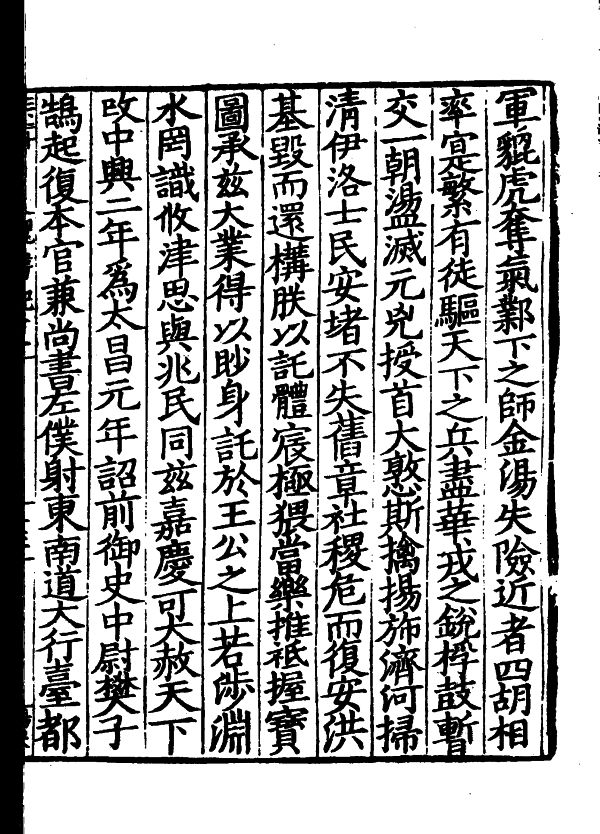 軍貔虎奪氣鄴下之師金湯失險近者四胡相
率寔繁有徒驅天下之兵盡華戎之銳桴鼓暫
交一朝盪滅元兇授首大憝斯擒揚斾濟河掃
清伊洛士民安堵不失舊章社稷危而復安洪
基毀而還構朕以託體宸極猥當樂推祗握寶
圖承兹大業得以眇身託於王公之上若涉淵
水罔識攸津思與兆民同兹嘉慶可大赦天下
改中興二年爲太昌元年詔前御史中尉樊子
鵠起復本官兼尚書左僕射東南道大行臺都